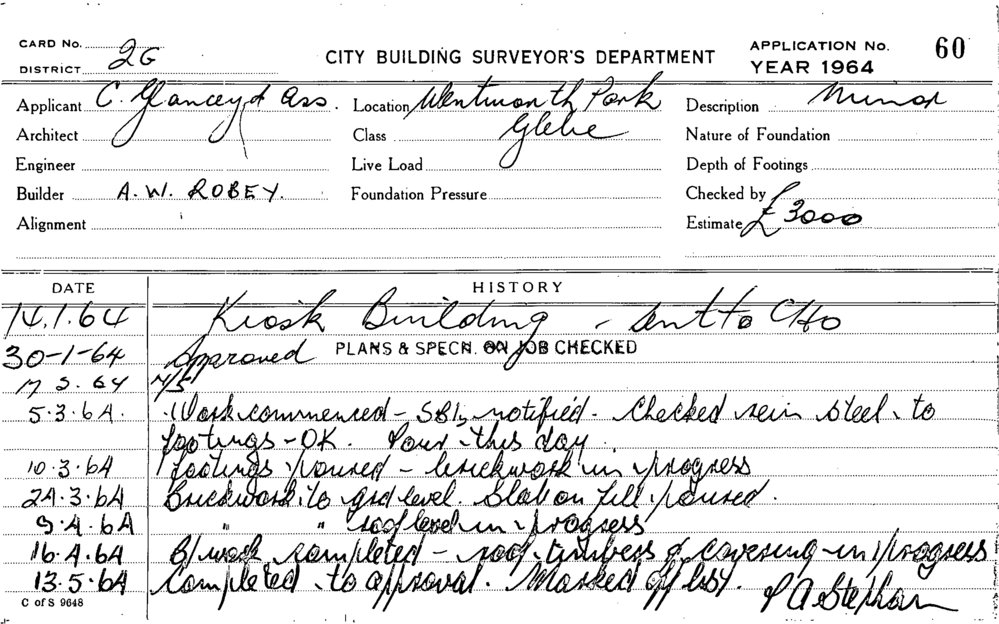 CARD No. 2G
DISTRICT
CITY BUILDING SURVEYOR'S DEPARTMENT
APPLICATION No. 60
YEAR 1964
Applicant C. Glancey & Ass. Location Wentworth Park Description Minor
Architect Class Glebe Nature of Foundation
Engineer Live Load Depth of Footings
Builder A. W. ROBEY. Foundation Pressure Checked by
Alignment Estimate £3000
DATE HISTORY
14.1.64 Kiosk Building - sent to CHO
30-1-64 Approved PLANS & SPECN. ON JOB CHECKED
17 2. 64 N/S
5.3.64. Work commenced - SBI, notified. Checked rein steel to
footings - OK. Pour this day.
10.3.64 footings poured - brickwork in progress
24.3.64 Brickwork to grd level. Slab on fill poured.
9.4.64 " " roof level in progress
16.4.64 B/work completed - roof timbers & covering in progress
13.5.64 Completed to approval. Marked off list. P A Stephan
C of S 9648